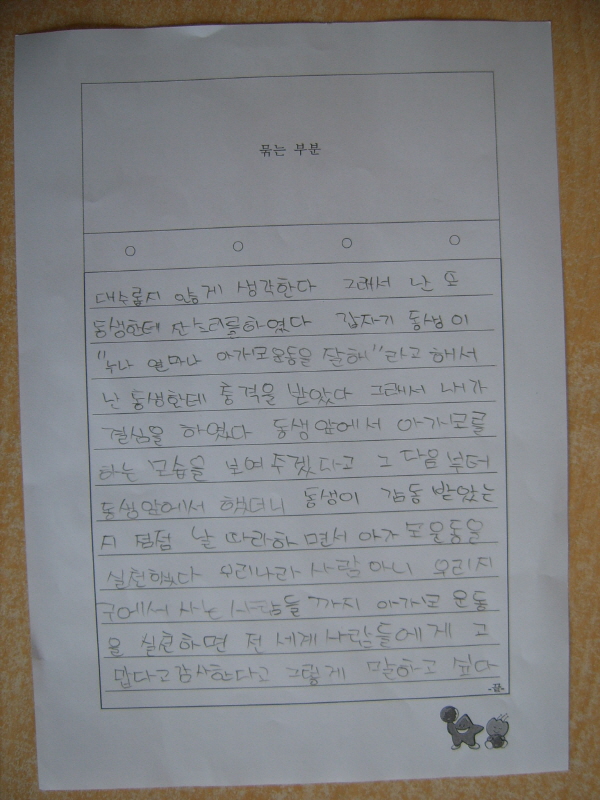 묶는 부분
대수롭지 않게 생각한다 그래서 난 또
동생한테 잔소리를하였다 갑자기 동생이
"누나 얼마나 아가모운동을 잘해"라고 해서
난 동생한테 충격을 받았다 그래서 내가
결심을 하였다 동생앞에서 아가모를
하는 모습을 보여주겠다고 그 다음부터
동생앞에서 했더니 동생이 감동받았는
지 점점 날 따라하면서 아가모운동을
실천했다 우리나라 사람 아니 우리지
구에서 사는 사람들 까지 아가모 운동
을 실천하면 전 세계 사람들에게 고
맙다고감사한다고 그렇게 말하고 싶다
-끝-